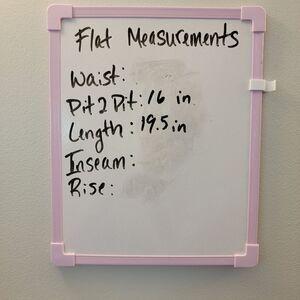 Flat Measurements
Waist:
Pit2Pit: 16 in
Length: 19.5 in
Inseam:
Rise: